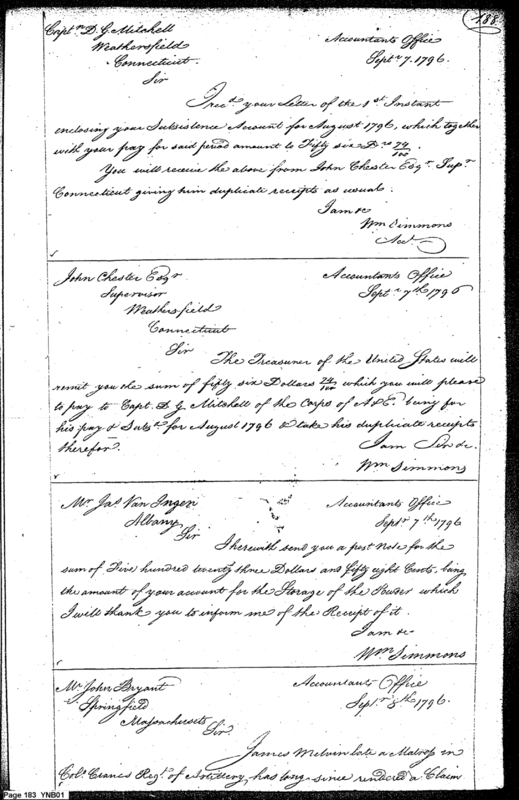 188
Capt.n D. G. Mitchell
Weathersfield
Connecticut
Accountants Office
Sept.r 7. 1796.
Sir
I rec.d your Letter of the 1st Instant
enclosing your Subsistence Account for August 1796, which together
with your pay for said period amount to Fifty six D.rs 74/100.
You will receive the above from John Chester Esq.r Sup.r
Connecticut giving him duplicate receipts as usual.
I am &c
Wm Simmons
Acc.t
John Chester Esq.r
Supervisor
Weathersfield
Connecticut
Accountants Office
Sept.r 7th 1796
Sir
The Treasurer of the United States will
remit you the sum of fifty six Dollars 74/100 which you will please
to pay to Capt. D. G. Mitchell of the Corps of A & E. being for
his pay & Subs.ce for August 1796 & take his duplicate receipts
therefor.
I am Sir &c.
Wm Simmons
Mr. Ja.s Van Ingen
Albany
Accountants Office
Sept.r 7th 1796
Sir
I herewith send you a post Note for the
sum of Five hundred twenty three Dollars and fifty eight Cents, being
the amount of your account for the Storage of the Powder which
I will thank you to inform me of the Receipt of it.
I am &c
Wm Simmons
Mr. John Bryant
Springfield
Massachusets
Accountants Office
Sept.r 8th 1796.
Sir
James Melvin late a Matross in
Col.o Cranes Reg.t of Artillery, has long since rendered a Claim
Page 183 YNB01